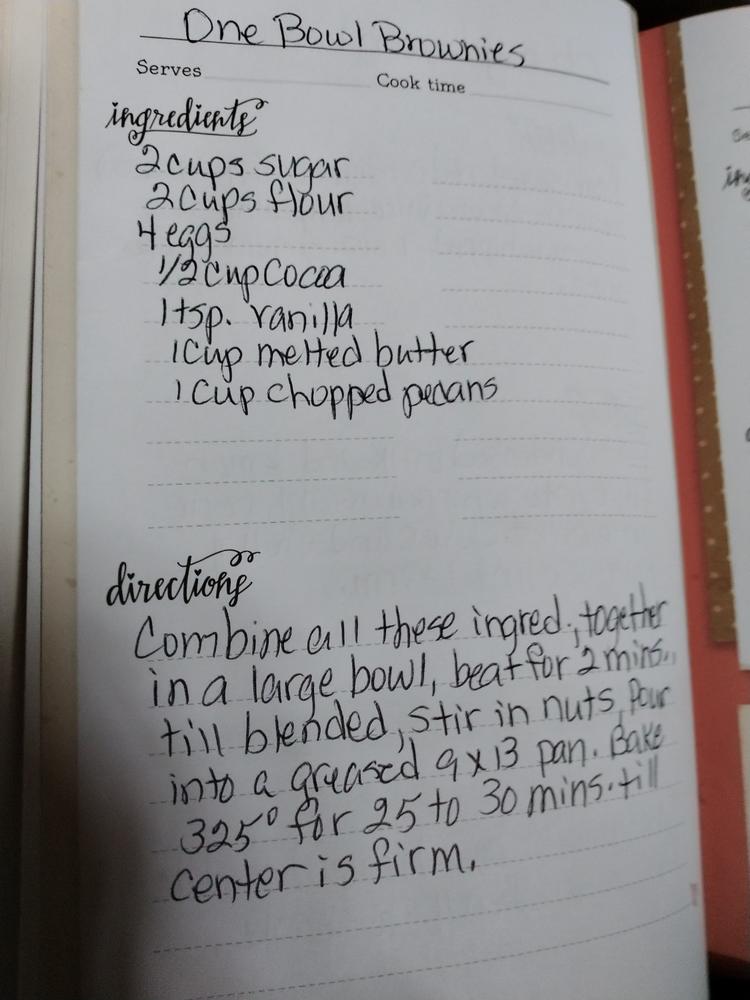 One Bowl Brownies
Serves
Cook time
ingredients
2 cups sugar
2 cups flour
4 eggs
1/2 cup Cocoa
1 tsp. vanilla
1 Cup melted butter
1 Cup chopped pecans
directions
Combine all these ingred., together
in a large bowl, beat for 2 mins.,
till blended, stir in nuts, Pour
into a greased 9 x 13 pan. Bake
325° for 25 to 30 mins. till
center is firm.